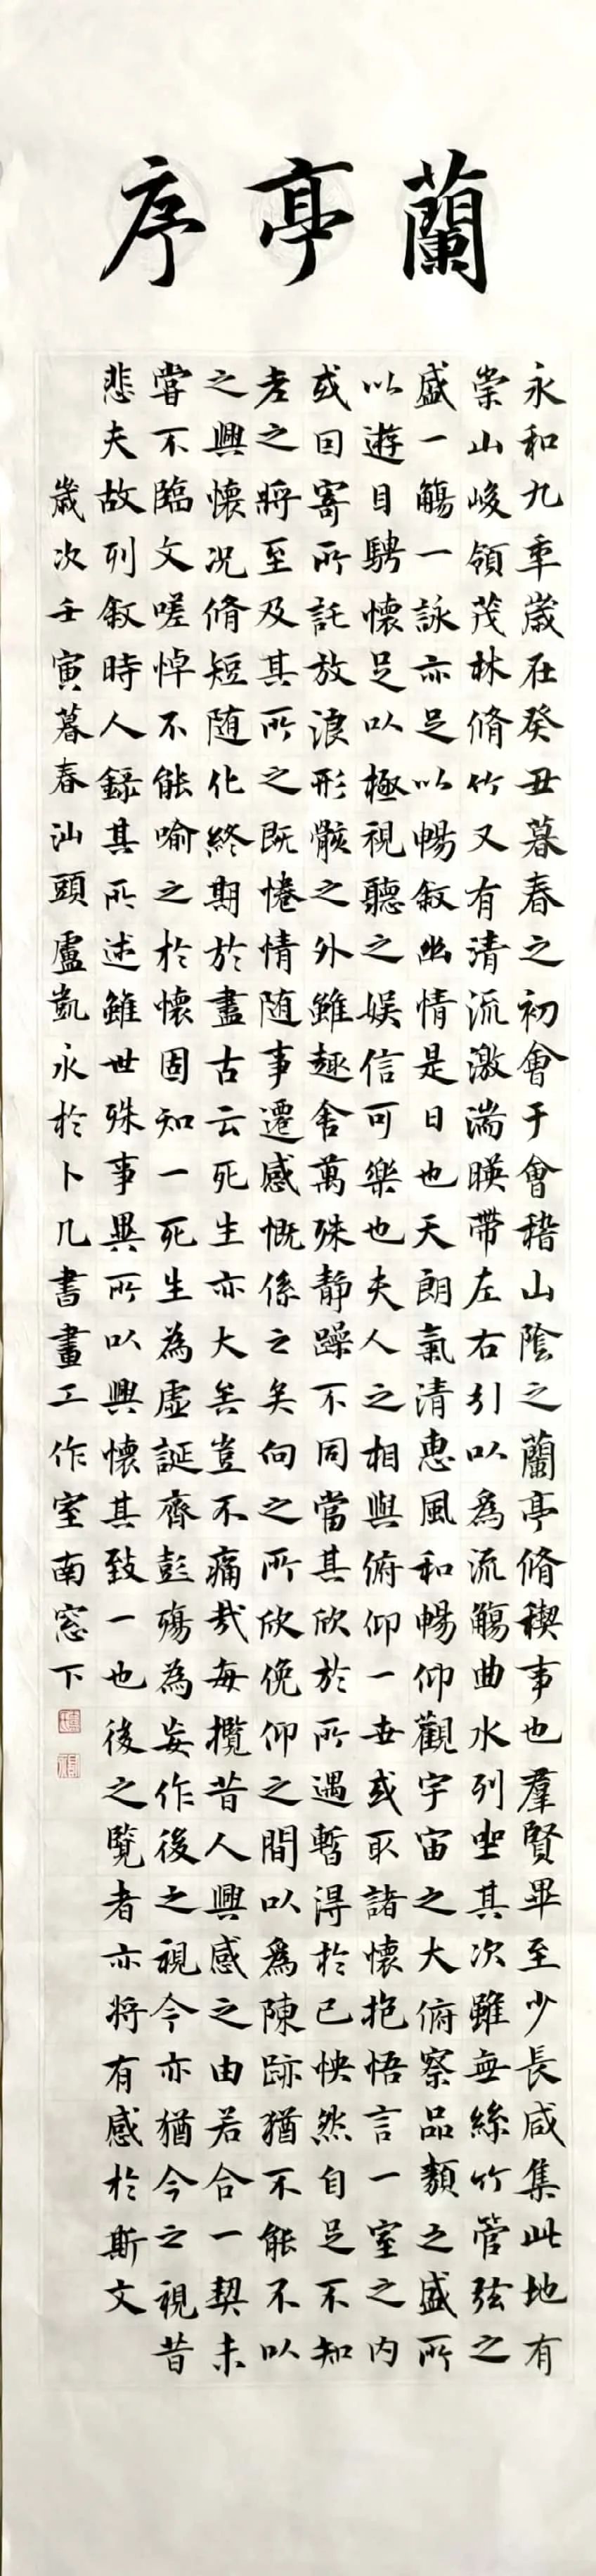 蘭亭序
永和九年歲在癸丑暮春之初會于會稽山陰之蘭亭脩禊事也羣賢畢至少長咸集此地有
崇山峻領茂林脩竹又有清流激湍暎帶左右引以為流觴曲水列坐其次雖無絲竹管弦之
盛一觴一詠亦足以暢敘幽情是日也天朗氣清惠風和暢仰觀宇宙之大俯察品類之盛所
以遊目騁懷足以極視聽之娛信可樂也夫人之相與俯仰一世或取諸懷抱悟言一室之內
或因寄所託放浪形骸之外雖趣舍萬殊靜躁不同當其欣於所遇暫得於己怏然自足不知
老之將至及其所之既惓情随事遷感慨係之矣向之所欣俛仰之間以為陳跡猶不能不以
之興懷況脩短随化終期於盡古云死生亦大矣豈不痛哉每攬昔人興感之由若合一契未
嘗不臨文嗟悼不能喻之於懷固知一死生為虛誕齊彭殤為妄作後之視今亦猶今之視昔
悲夫故列敘時人錄其所述雖世殊事異所以興懷其致一也後之覽者亦將有感於斯文
歲次壬寅暮春汕頭盧凱永於卜几書畫工作室南窓下